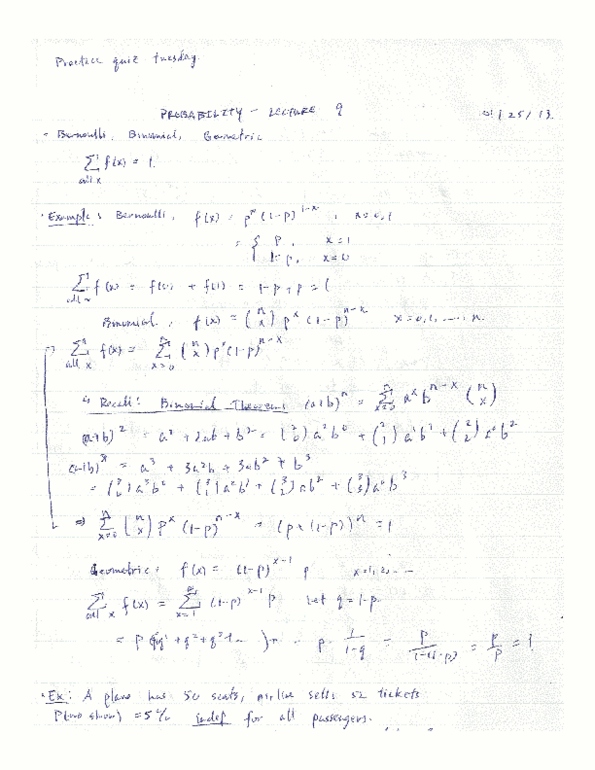 Practice quiz tuesday
PROBABILITY - LECTURE 9
25/13
- Bernoulli, Binomial, Geometric
∑ f(x) = 1
all x
Example: Bernoulli, f(x) = p^x (1-p)^{1-x}, x=0,1
= { p, x=1
1-p, x=0
∑ f(x) = f(0) + f(1) = 1-p+p = 1
all x
Binomial, f(x) = (n x) p^x (1-p)^{n-x} x=0,1,...,n.
∑ f(x) = ∑ (n x) p^x (1-p)^{n-x}
all x x=0
Recall: Binomial Theorem (a+b)^n = ∑ a^x b^{n-x} (n x)
(a+b)^2 = a^2 + 2ab + b^2 = (2 0) a^2 b^0 + (2 1) a^1 b^1 + (2 2) a^0 b^2
(a+b)^3 = a^3 + 3a^2b + 3ab^2 + b^3
= (3 0) a^3 b^0 + (3 1) a^2 b^1 + (3 2) a b^2 + (3 3) a^0 b^3
⇒ ∑ (n x) p^x (1-p)^{n-x} = (p+(1-p))^n = 1
Geometric: f(x) = (1-p)^{x-1} p x=1,2,...
∑ f(x) = ∑ (1-p)^{x-1} p Let q=1-p
all x x=1
= p · 1/(1-q) = p/(1-(1-p)) = p/p = 1
Ex: A plane has 50 seats, airline sells 52 tickets
P(no show) = 5% indep for all passengers.